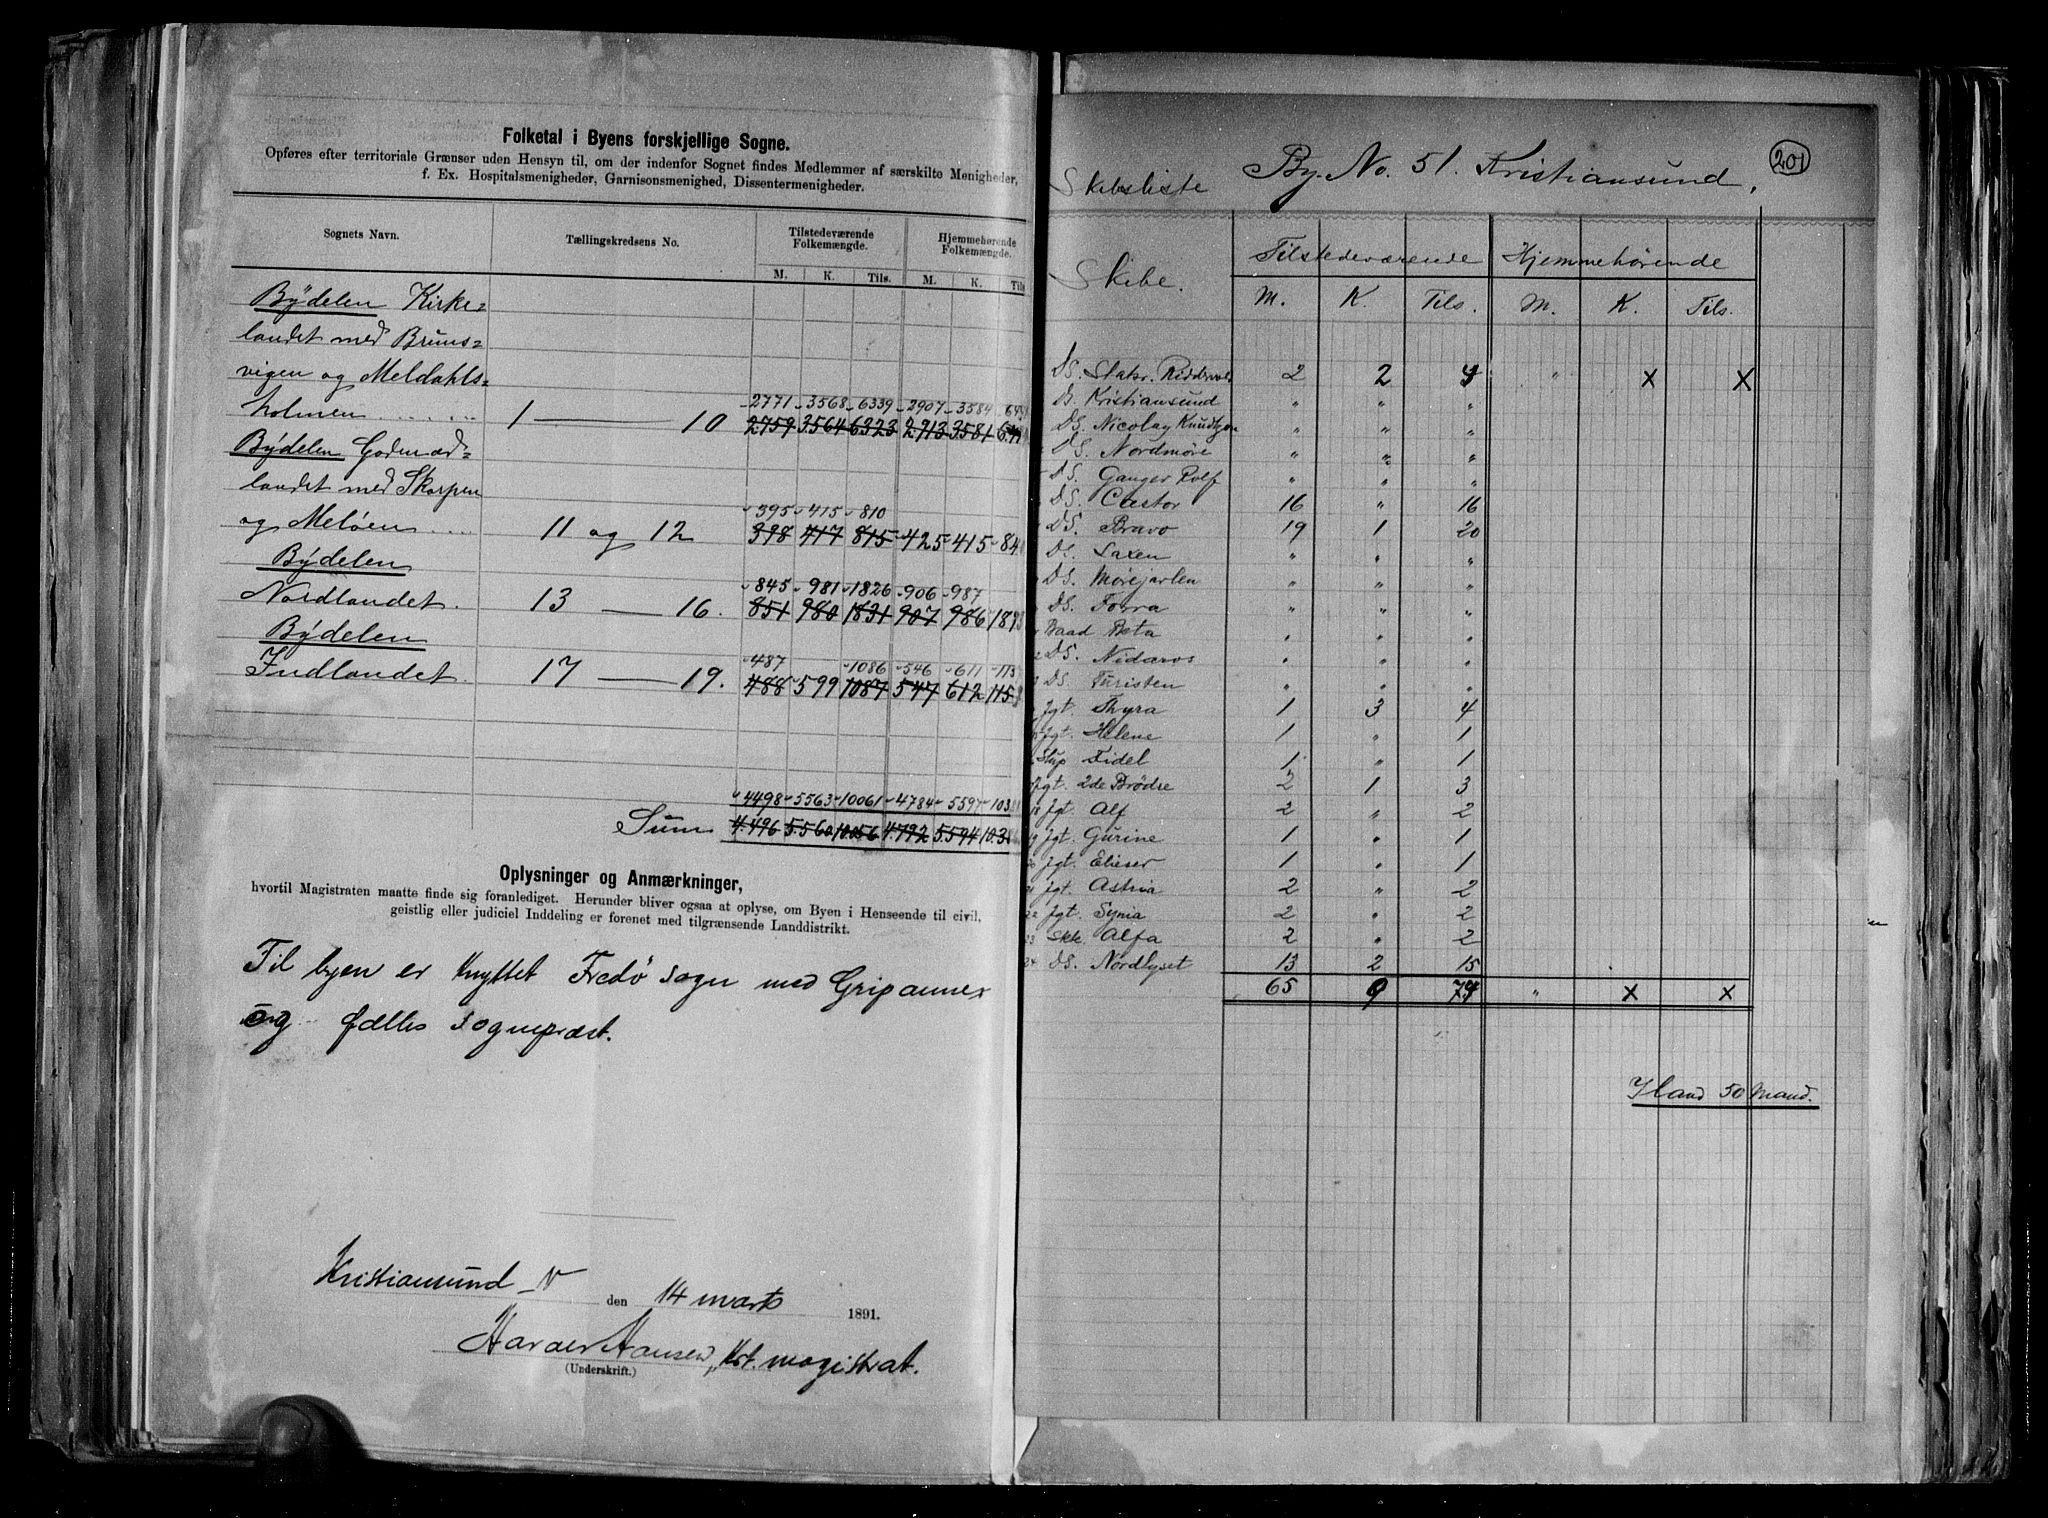 Folketal i Byens forskjellige Sogne.
Opføres efter territoriale Grænser uden Hensyn til, om der indenfor Sognet findes Medlemmer af særskilte Menigheder,
f. Ex. Hospitalsmenigheder, Garnisonsmenighed, Dissentermenigheder.
Sognets Navn. Tællingskredsens No. Tilstedeværende Folkemængde. Hjemmehørende Folkemængde.
M. K. Tils. M. K. Tils
Bydelen Kirke=
landet med Bruns=
vigen og Meldahls=
2771 3568 6339 2907 3584
holmen 1 — 10 2759 3564 6323 2913 3581
Bydelen Gomad=
landet med Skorpen
395 415 810
og Meløen 11 og 12 398 417 815 425 415 84
Bydelen
845 981 1826 906 987
Nordlandet. 13 — 16. 851 980 1831 907 986 189
Bydelen
487 1086 546 611 113
Indlandet. 17 — 19. 488 599 1087 547 612 115
4498 5563 10061 4784 5597 103
Sum 4.496 5.560 10.056 4.792 5.594 10.3
Oplysninger og Anmærkninger,
hvortil Magistraten maatte finde sig foranlediget. Herunder bliver ogsaa at oplyse, om Byen i Henseende til civil,
geistlig eller judiciel Inddeling er forenet med tilgrænsende Landdistrikt.
Til byen er knyttet Fredø sogn med Grip annex
og fælles sogneprest.
Kristiansund N den 14 marts 1891.
Harder Hansen, kst. magistrat.
(Underskrift.)
201
Skibsliste By. No. 51. Kristiansund.
Skibe. Tilstedeværende Hjemmehørende
M. K. Tils. M. K. Tils.
DS. Statsr. Riddervol 2 2 4 " X X
B. Kristiansund " " "
DS. Nicolay Knudtzon " " "
DS. Nordmøre " " "
DS. Ganger Rolf " " "
DS. Castor 16 " 16
DS. Bravo 19 1 20
DS. Saxen " " "
DS. Mørejarlen " " "
DS. Torra " " "
Baad Beta " " "
DS. Nidaros " " "
DS. Turisten " " "
Jgt. Thyra 1 3 4
Jgt. Helene 1 " 1
Slup Fidel 1 " 1
Jgt. 2de Brødre 2 1 3
18 Jgt. Alf 2 " 2
19 Jgt. Gurine 1 " 1
20 Jgt. Elieser 1 " 1
21 Jgt. Astria 2 " 2
22 Jgt. Synia 2 " 2
23 Skk. Alfa 2 " 2
24 DS. Nordlyset 13 2 15
65 9 74 " X X
Iland 50 Mand.